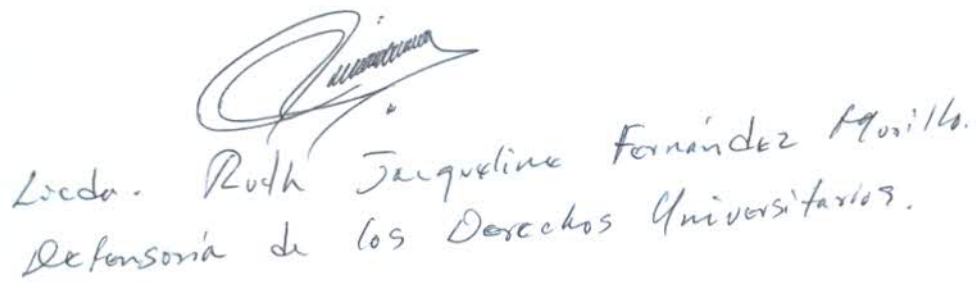 Licda. Ruth Jacqueline Fernández Murillo.
Defensoría de los Derechos Universitarios.